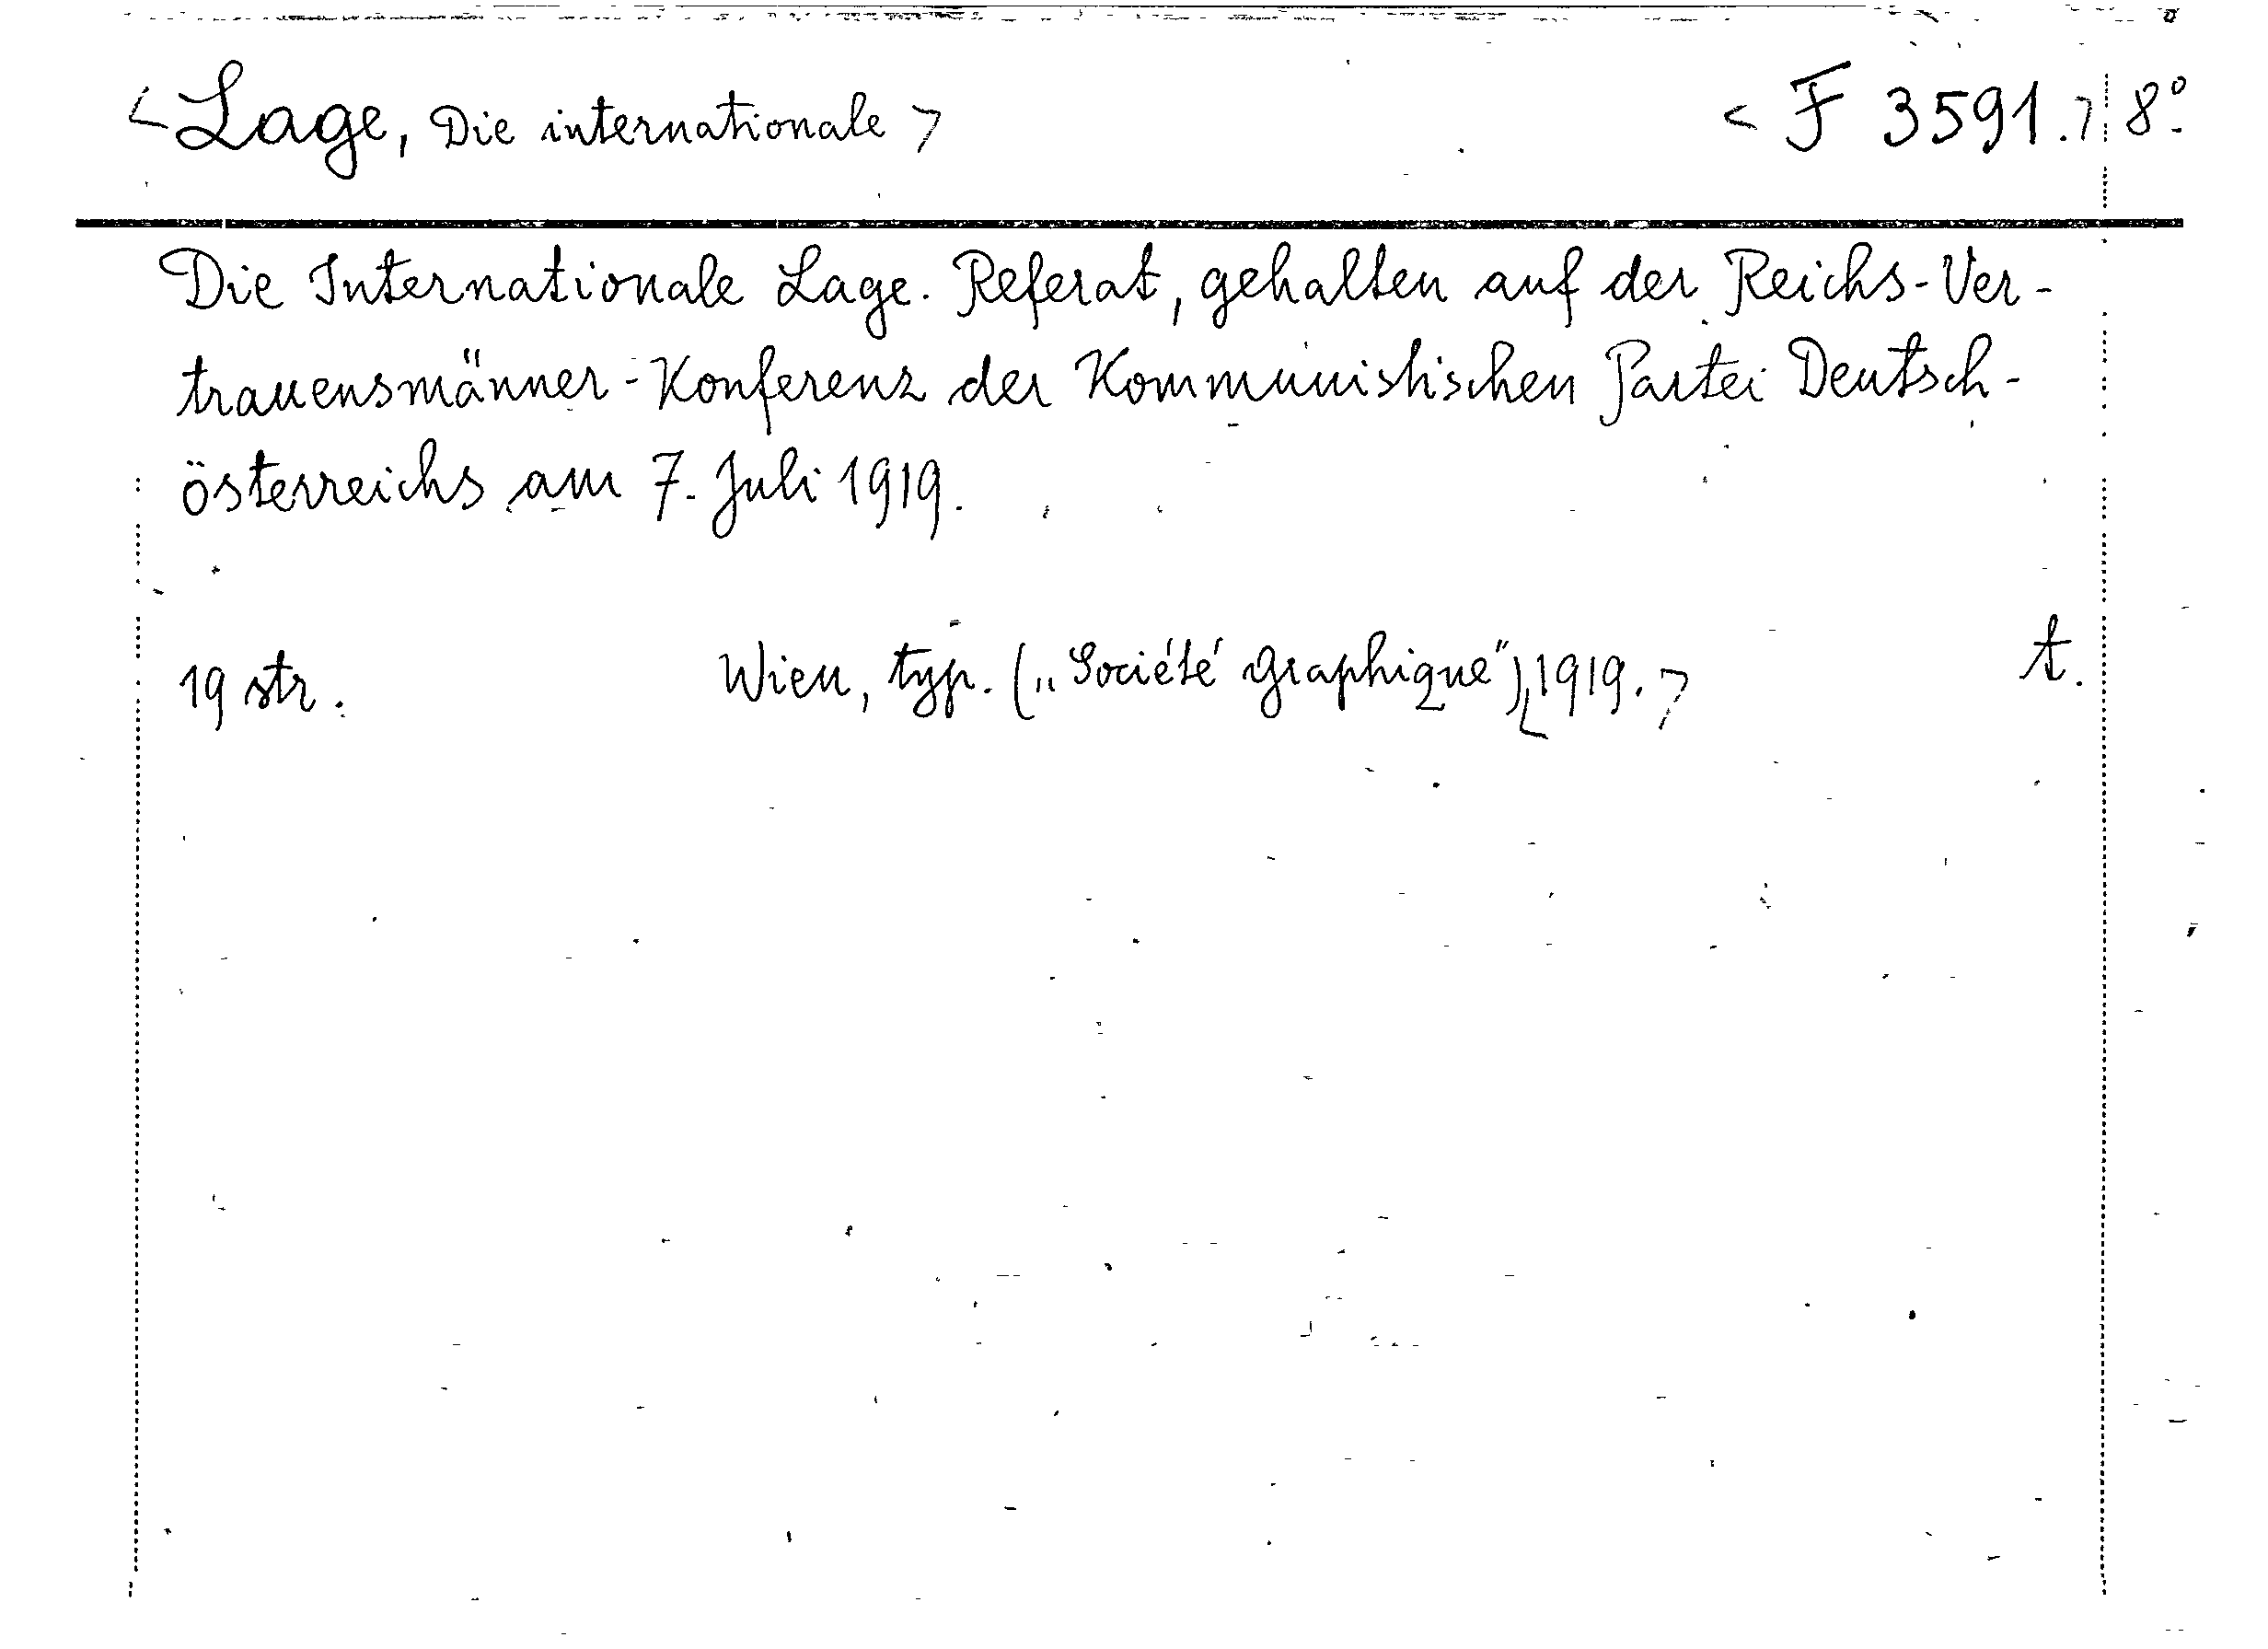 <Lage, Die internationale> <F 3591.> 8°.
Die Internationale Lage. Referat, gehalten auf der Reichs-Ver-
trauensmänner-Konferenz der Kommunistischen Partei Deutsch-
österreichs am 7. Juli 1919.
19 str. Wien, typ. („Société graphique")<1919.> t.